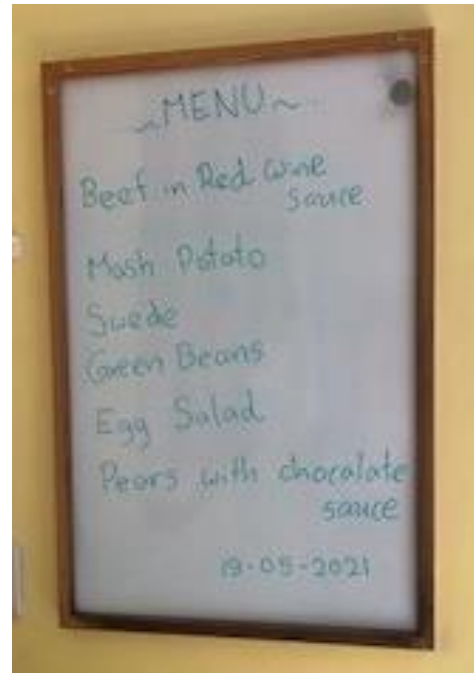 ~MENU~
Beef in Red wine
sauce
Mash Potato
Swede
Green Beans
Egg Salad
Pears with chocalate
sauce
19-05-2021